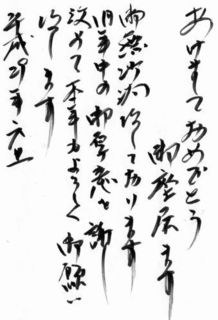 あけまして おめでとう
御座居ます
御無沙汰して おります
旧年中の御厚意を謝し
本年もよろしく御願い
致します
平成29年元旦